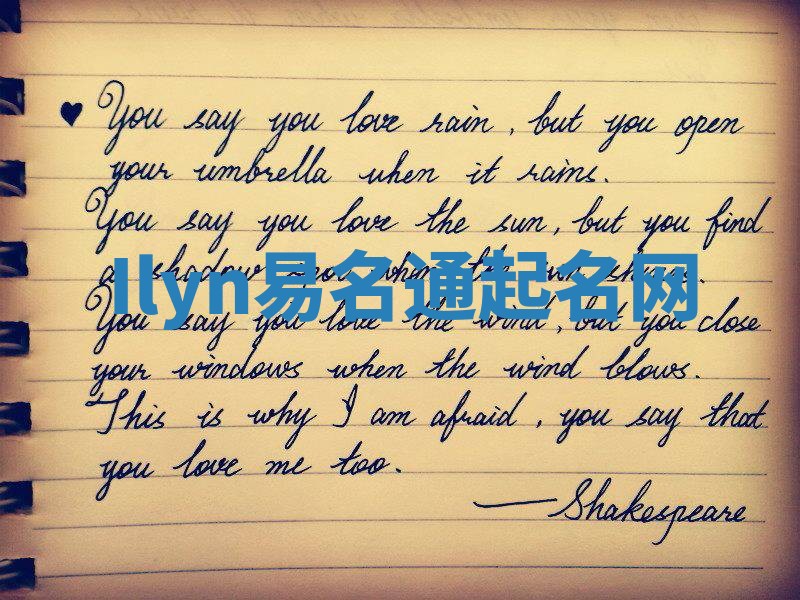 You say you love rain, but you open
your umbrella when it rains.
You say you love the sun, but you find
a shadow spot when the sun shines.
Ilyn易名通起名网
You say you love the wind, but you close
your windows when the wind blows.
This is why I am afraid, you say that
you love me too.
— Shakespeare